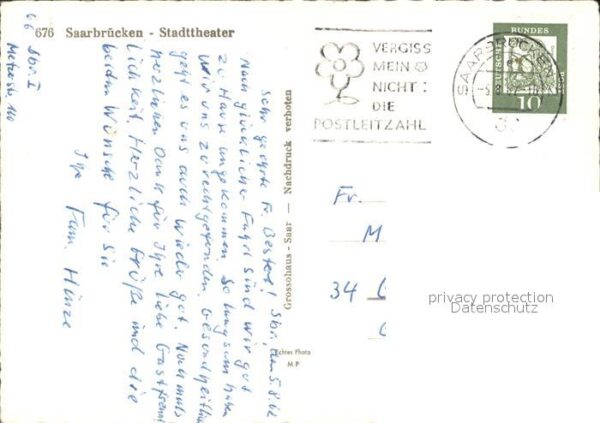 676 Saarbrücken - Stadttheater
66 Sbr. I
Metzerstr. 110
Sbr, den 5.8.62
Sehr geehrte Fr. Bester!
Nach glücklicher Fahrt sind wir gut
zu Hause angekommen. So langsam haben
wir uns zurechtgefunden. Gesundheitlich
geht es uns auch wieder gut. Nochmals
herzlichen Dank für Ihre liebe Gastfreund-
lichkeit. Herzliche Grüße und die
besten Wünsche für Sie
Ihre Fam. Hinze
Grossohaus - Saar — Nachdruck verboten
Echtes Photo
M P
VERGISS
MEIN
NICHT:
DIE
POSTLEITZAHL
SAARBRÜCKEN
DEUTSCHE
BUNDES
POST
10
Fr.
M
34
privacy protection
Datenschutz